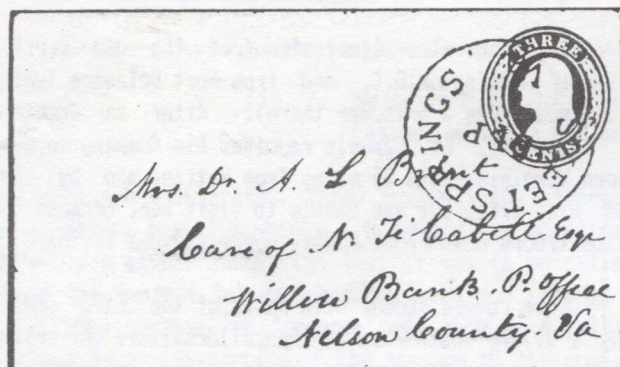 THREE
CENTS
EETSPRINGS.
Mrs. Dr. A. L Brent
Care of N. F. Cabell Esq
Willow Bank. P. Office
Nelson County. Va